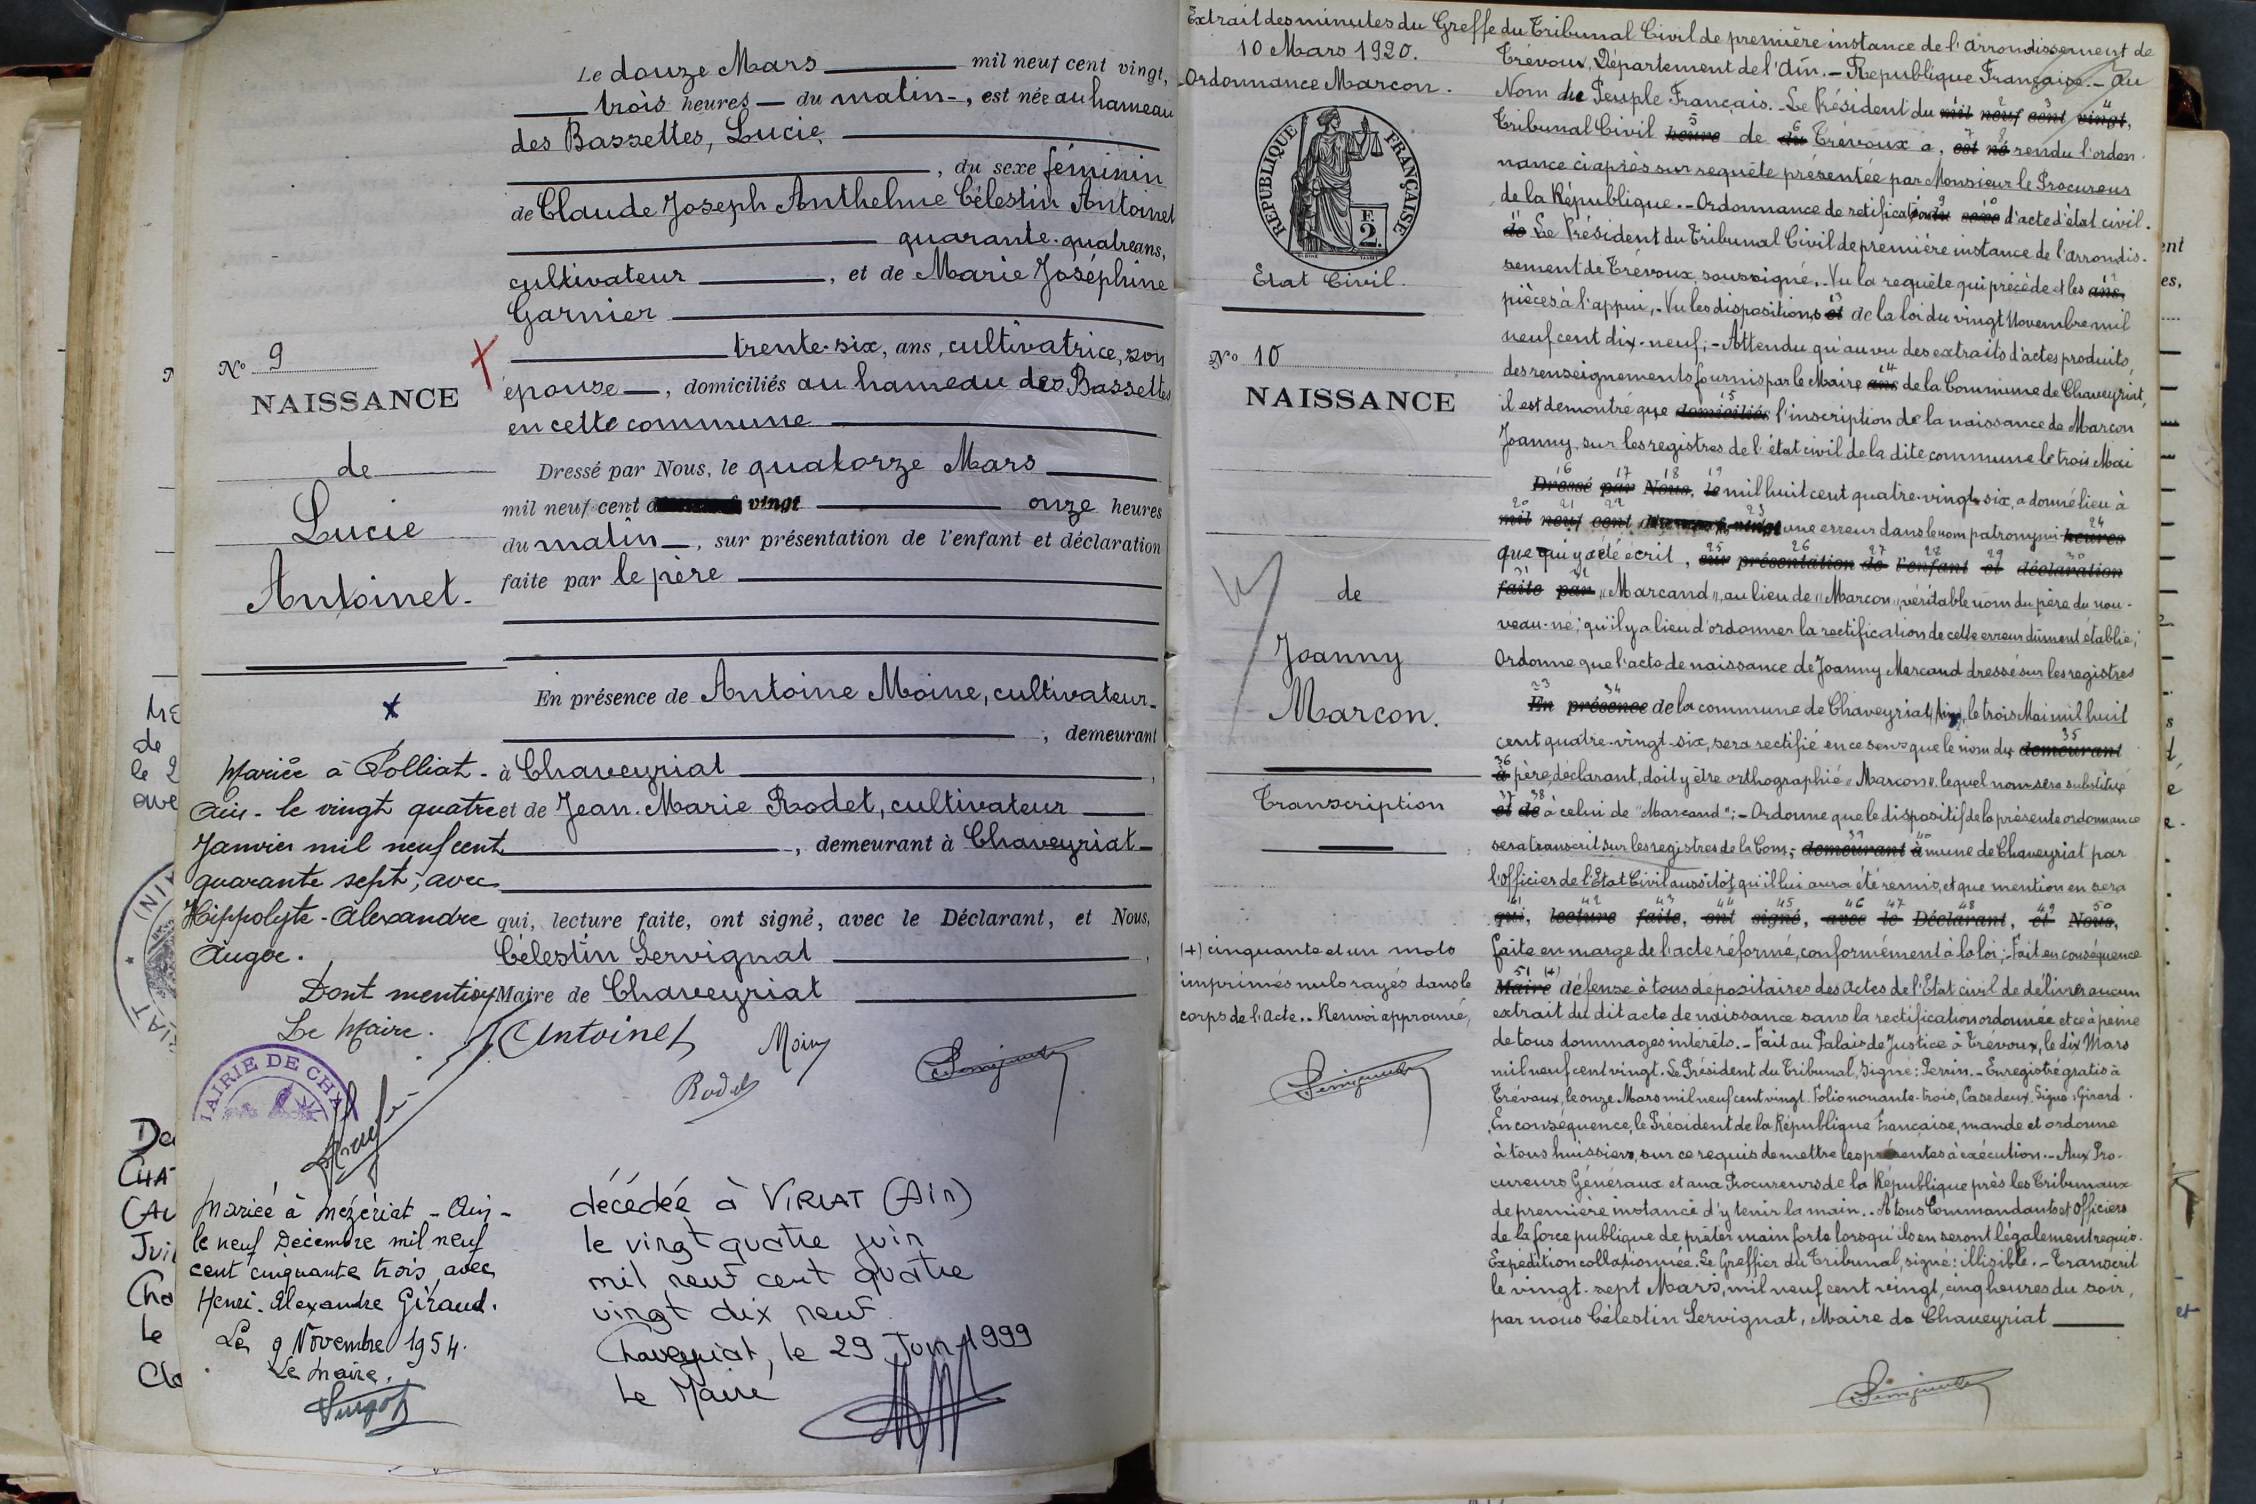 Le douze Mars mil neuf cent vingt,
trois heures du matin, est née au hameau
des Bassettes, Lucie
, du sexe féminin
de Claude Joseph Anthelme Célestin Antoinet
quarante-quatre ans,
cultivateur, et de Marie Joséphine
Garnier
trente-six, ans, cultivatrice, son
épouse, domiciliés au hameau des Bassettes
en cette commune
Dressé par Nous, le quatorze Mars
mil neuf cent vingt onze heures
du matin, sur présentation de l'enfant et déclaration
faite par le père
En présence de Antoine Moine, cultivateur
, demeurant
à Chaveyriat
et de Jean-Marie Rodet, cultivateur
, demeurant à Chaveyriat
qui, lecture faite, ont signé, avec le Déclarant, et Nous,
Célestin Servignat
Maire de Chaveyriat
Antoinet
Moine
Rodet
No 9
NAISSANCE
de
Lucie
Antoinet.
Mariée à Polliat -
Ain - le vingt quatre
Janvier mil neuf cent
quarante sept, avec
Hippolyte-Alexandre
Dont mention
Le Maire.
MAIRIE DE CHA
Mariée à Mézériat - Ain -
le neuf Décembre mil neuf
cent cinquante trois, avec
Henri-Alexandre Giraud.
Le 9 Novembre 1954.
Le Maire.
décédée à VIRIAT (Ain)
le vingt quatre juin
mil neuf cent quatre
vingt dix neuf
Chaveyriat, le 29 Juin 1999
Le Maire
Extrait des minutes du Greffe du Tribunal Civil de première instance de l'arrondissement de
10 Mars 1920.
Ordonnance Marcon.
REPUBLIQUE FRANÇAISE
E
2.
Etat Civil.
No 10
NAISSANCE
de
Joanny
Marcon.
Transcription
(+) cinquante et un mots
imprimés nuls rayés dans le
corps de l'acte.. Renvoi approuvé,
Trévoux, Département de l'Ain. - République Française. - Au
Nom du Peuple Français. - Le Président du mil neuf cent vingt,
Tribunal Civil heure de du Trévoux a, est né rendu l'ordon-
nance ci après sur requête présentée par Monsieur le Procureur
de la République. - Ordonnance de retification du sexe d'acte d'état civil.
de Le Président du Tribunal Civil de première instance de l'arrondis-
sement de Trévoux, soussigné. - Vu la requête qui précède et les ans,
pièces à l'appui, - Vu les dispositions et de la loi du vingt Novembre mil
neuf cent dix-neuf; - Attendu qu'au vu des extraits d'actes produits,
des renseignements fournis par le Maire ans de la Commune de Chaveyriat,
il est démontré que domiciliés l'inscription de la naissance de Marcon
Joanny, sur les registres de l'état civil de la dite commune le trois Mai
Dressé par Nous, le mil huit cent quatre-vingt-six, a donné lieu à
mil neuf cent vingt une erreur dans le nom patronymi- heures
que qui y a été écrit, sur présentation de l'enfant et déclaration
faite par "Marcand", au lieu de "Marcon", véritable nom du père du nou-
veau-né; qu'il y a lieu d'ordonner la rectification de cette erreur dûment établie;
Ordonne que l'acte de naissance de Joanny Marcand dressé sur les registres
En présence de la commune de Chaveyriat (Ain), le trois Mai mil huit
cent quatre-vingt-six, sera rectifié en ce sens que le nom du demeurant
à père déclarant, doit y être orthographié "Marcon" lequel nom sera substitué
et de à celui de "Marcand"; - Ordonne que le dispositif de la présente ordonnance
sera transcrit sur les registres de la Com- demeurant à mune de Chaveyriat par
l'officier de l'Etat Civil aussitôt qu'il lui aura été remis, et que mention en sera
qui, lecture faite, ont signé, avec le Déclarant, et Nous,
faite en marge de l'acte réformé, conformément à la loi; - Fait en conséquence
Maire (+) défense à tous dépositaires des actes de l'Etat civil de délivrer aucun
extrait du dit acte de naissance sans la rectification ordonnée et ce à peine
de tous dommages intérêts. - Fait au Palais de Justice à Trévoux, le dix Mars
mil neuf cent vingt. Le Président du Tribunal, Signé: Perrin. - Enregistré gratis à
Trévoux, le onze Mars mil neuf cent vingt. Folio nonante-trois, Case deux. Signé: Girard.
En conséquence, le Président de la République Française, mande et ordonne
à tous huissiers, sur ce requis de mettre les présentes à exécution. - Aux Pro-
cureurs Généraux et aux Procureurs de la République près les Tribunaux
de première instance d'y tenir la main.. A tous Commandants et Officiers
de la force publique de prêter main forte lorsqu'ils en seront légalement requis.
Expédition collationnée. Le Greffier du Tribunal, signé: illisible. - Transcrit
le vingt-sept Mars, mil neuf cent vingt, cinq heures du soir,
par nous Célestin Servignat, Maire de Chaveyriat